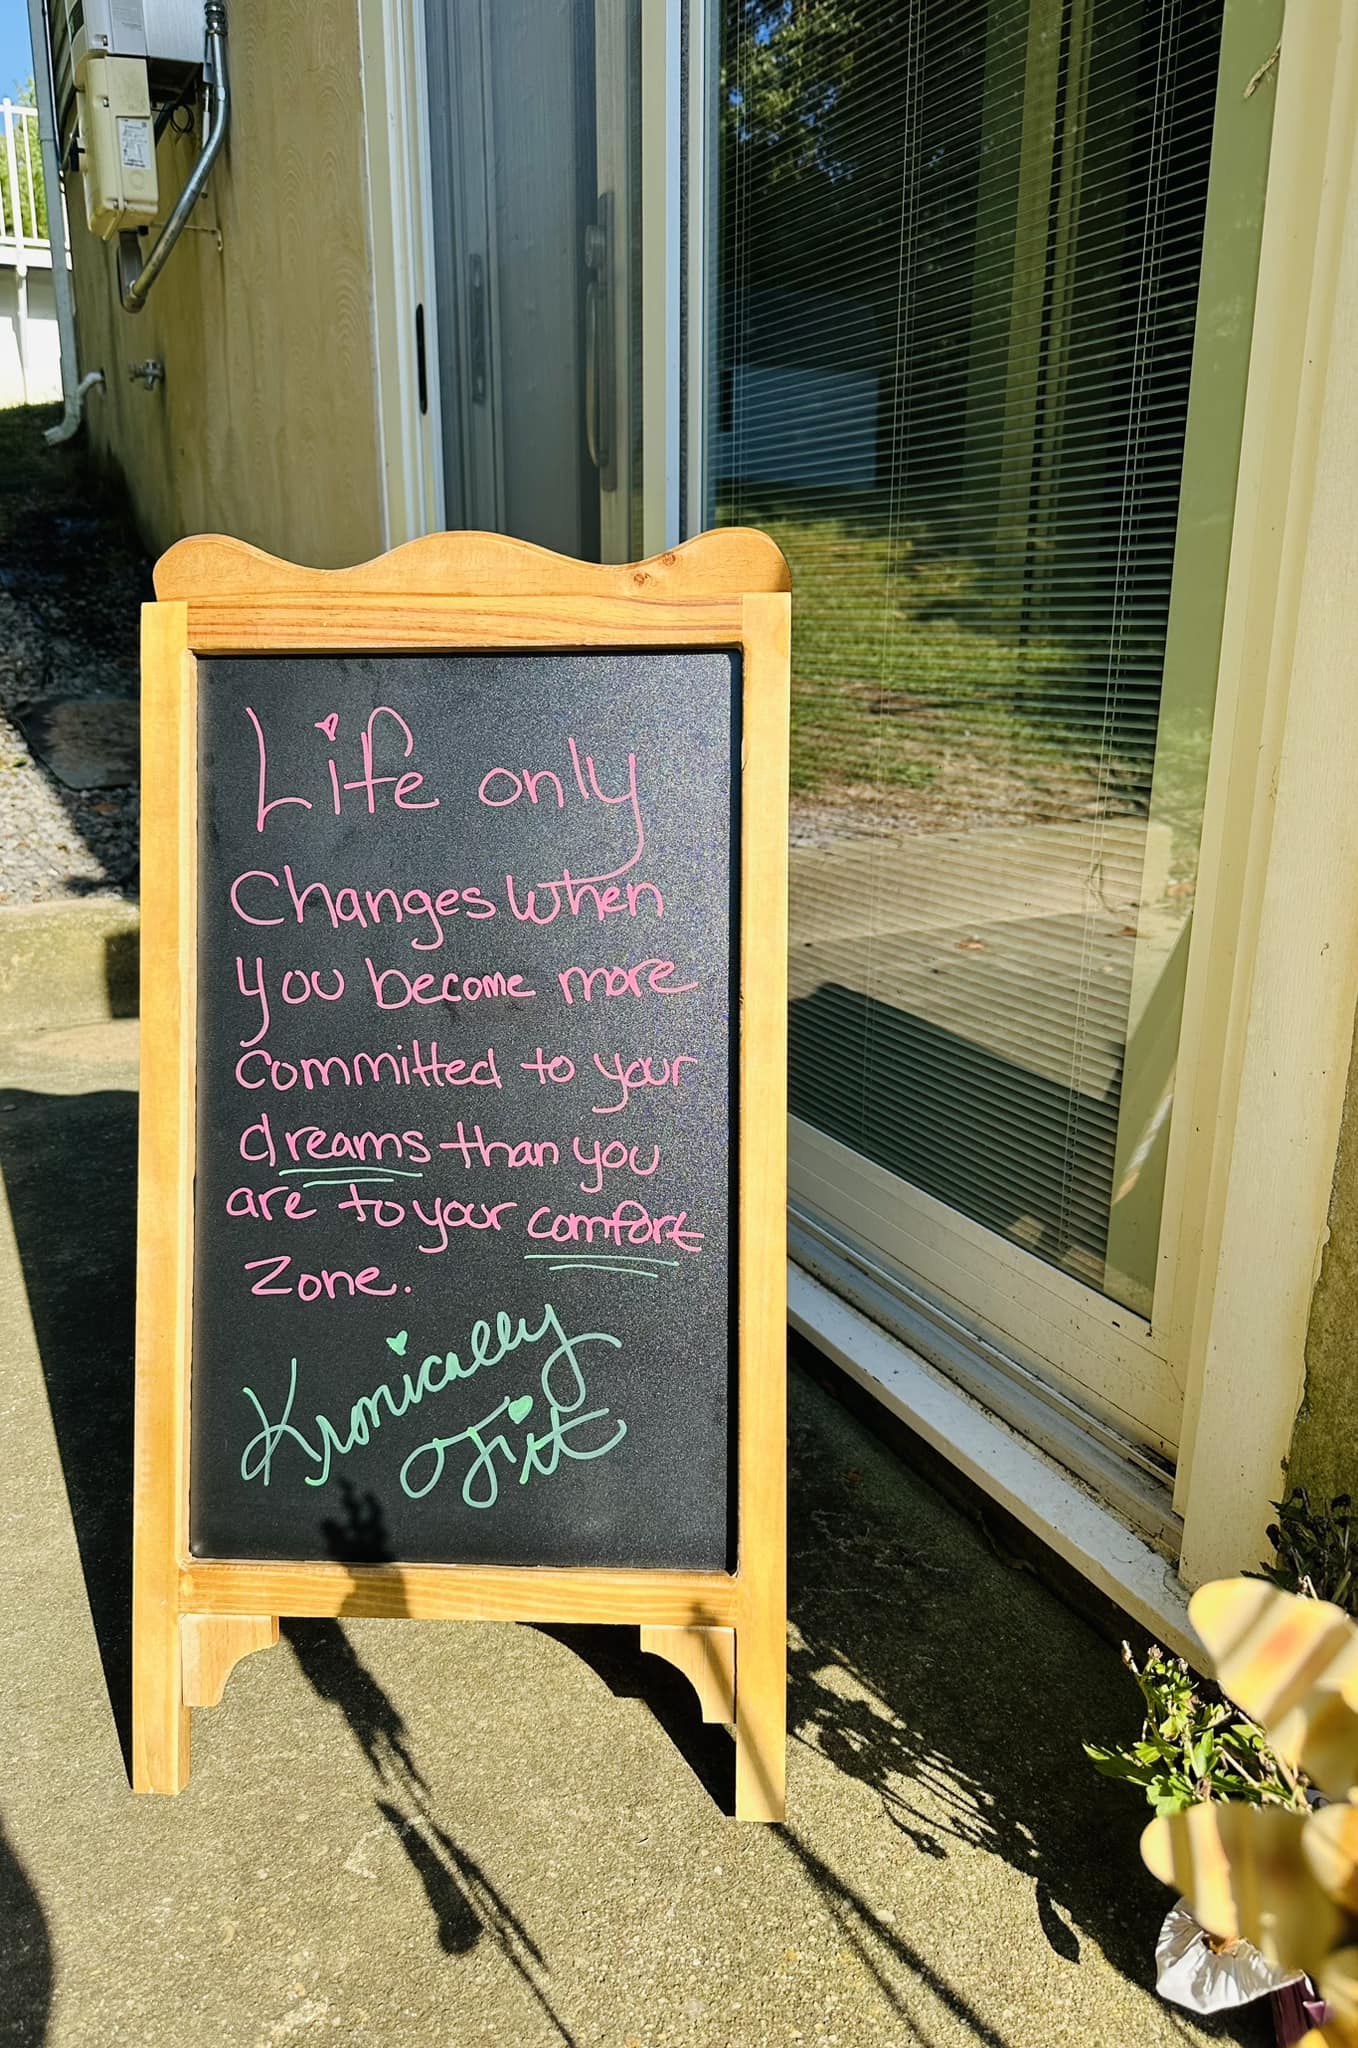 Life only
Changes when
you become more
committed to your
dreams than you
are to your comfort
Zone.
Kronically
Fit